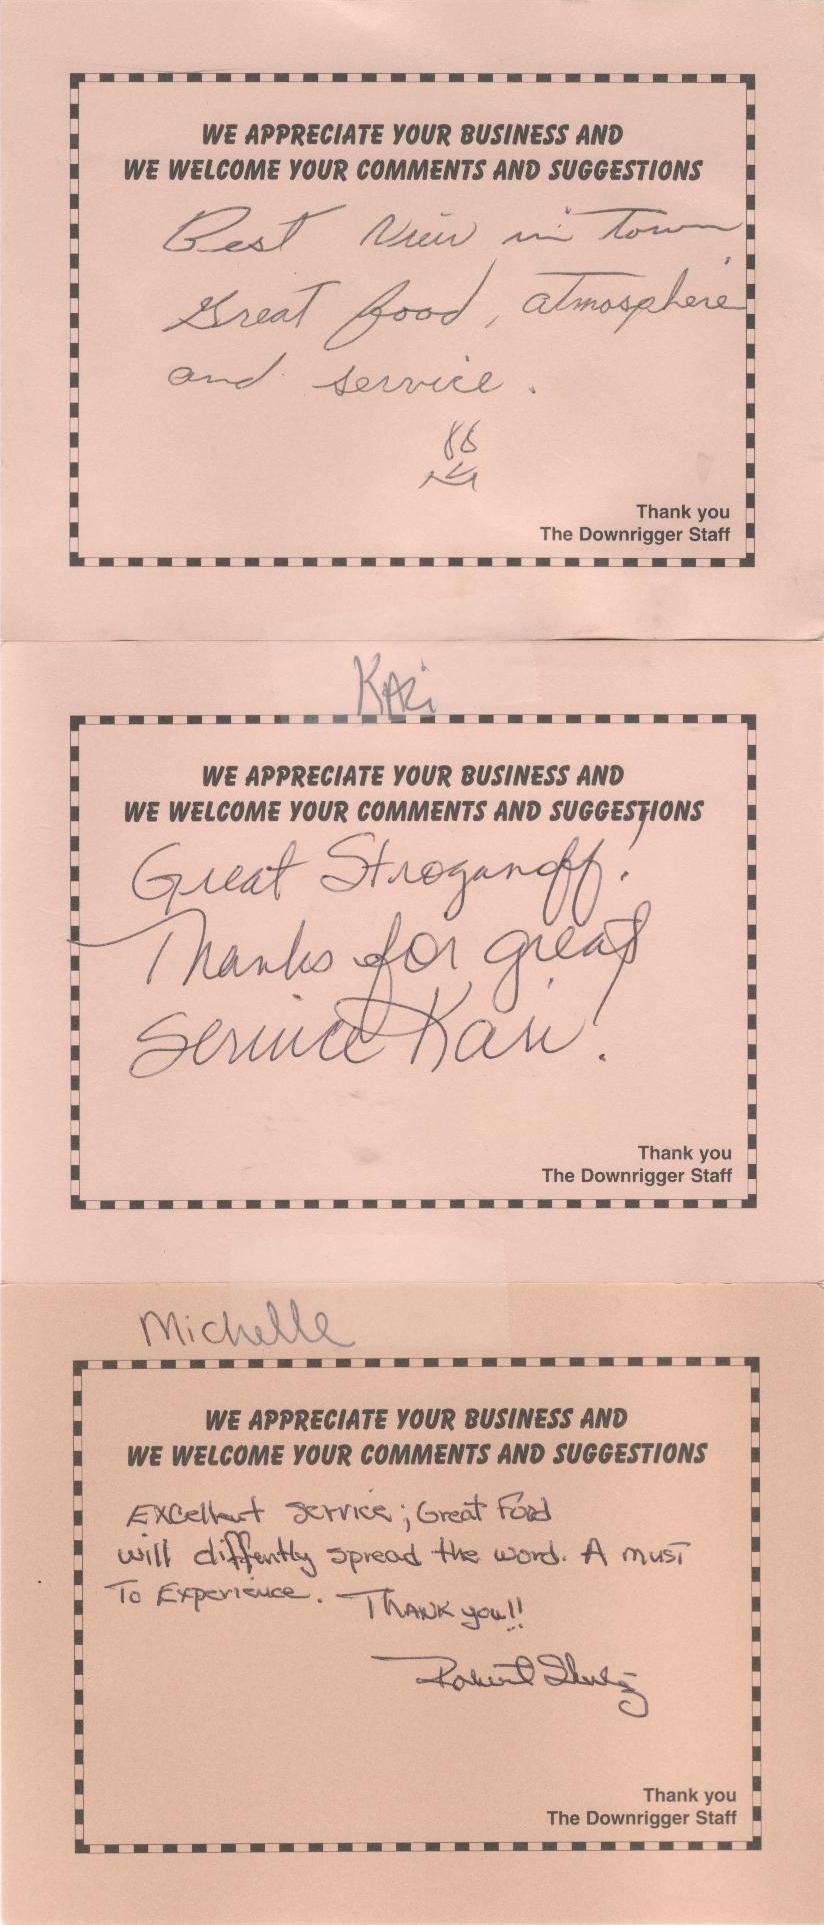 WE APPRECIATE YOUR BUSINESS AND
WE WELCOME YOUR COMMENTS AND SUGGESTIONS
Best View in Town
Great food, atmosphere
and service.
Thank you
The Downrigger Staff
KARi
WE APPRECIATE YOUR BUSINESS AND
WE WELCOME YOUR COMMENTS AND SUGGESTIONS
Great Stroganoff!
Thanks for great
Service Kari!
Thank you
The Downrigger Staff
Michelle
WE APPRECIATE YOUR BUSINESS AND
WE WELCOME YOUR COMMENTS AND SUGGESTIONS
Excellent service; Great Food
will diffently spread the word. A must
To Experience. Thank you!!
Robert
Thank you
The Downrigger Staff